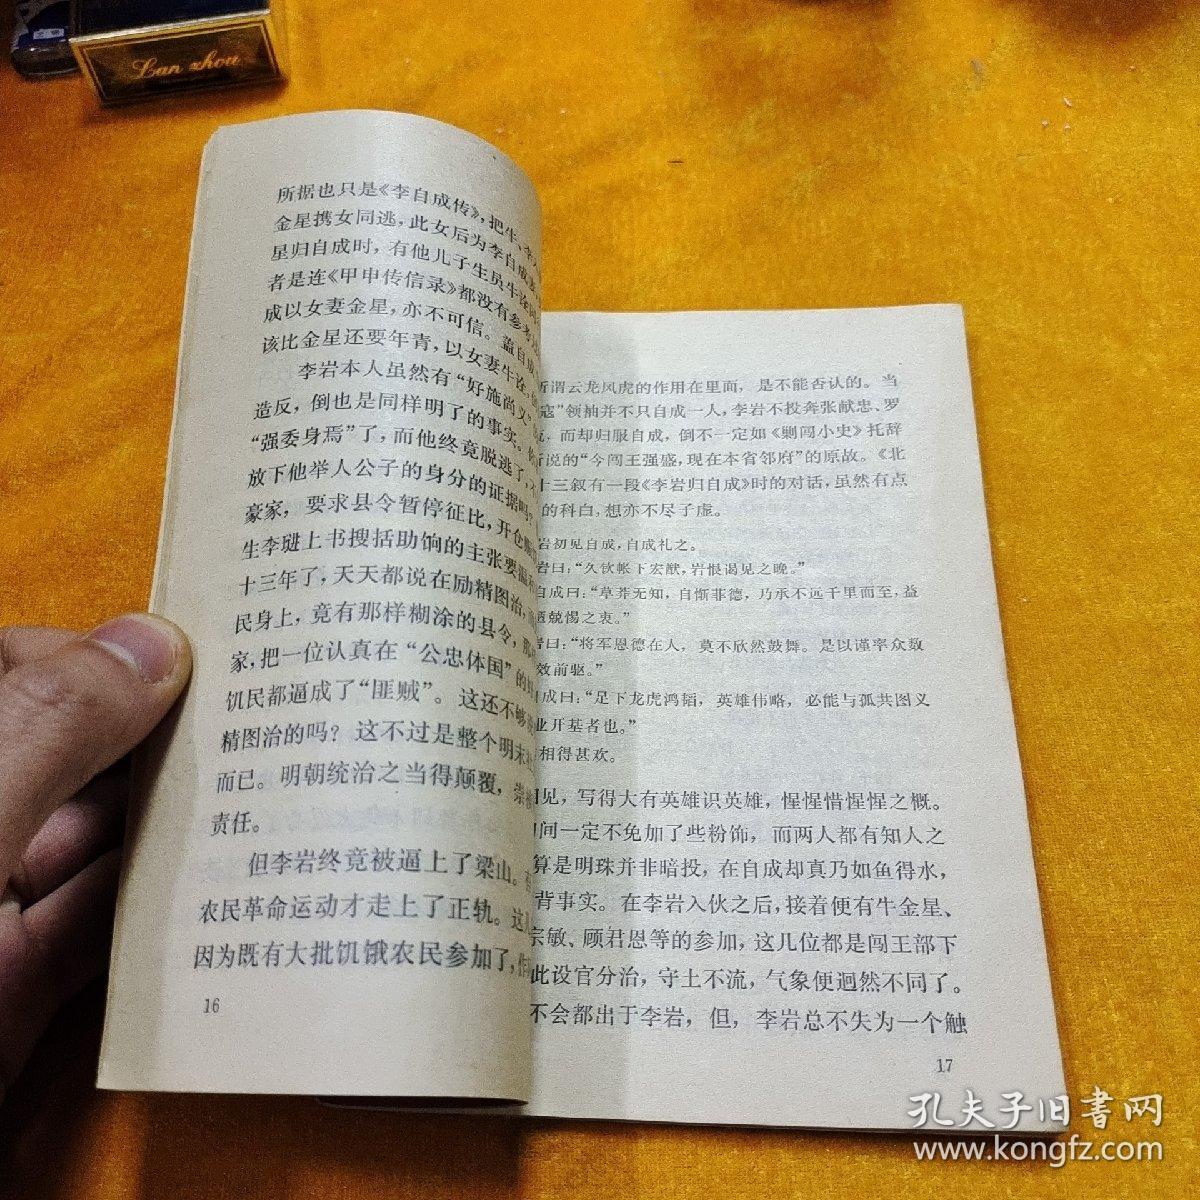 Lan zhou
所据也只是《李自成传》，把牛、李
金星携女同逃，此女后为李自成妻
星归自成时，有他儿子生员牛诠同
者是连《甲申传信录》都没有参考
成以女妻金星，亦不可信。盖自成
该比金星还要年青，以女妻牛诠，
李岩本人虽然有“好施尚义”
造反，倒也是同样明了的事实。
“强委身焉”了，而他终竟脱逃了，
放下他举人公子的身分的证据吗？
豪家，要求县令暂停征比，开仓赈
生李琎上书搜括助饷的主张要温
十三年了，天天都说在励精图治，
民身上，竟有那样糊涂的县令，那
家，把一位认真在“公忠体国”的
饥民都逼成了“匪贼”。这还不够
精图治的吗？这不过是整个明末
而已。明朝统治之当得颠覆，崇
责任。
但李岩终竟被逼上了梁山。
农民革命运动才走上了正轨。这
因为既有大批饥饿农民参加了，作
16
所谓云龙风虎的作用在里面，是不能否认的。当
寇”领袖并不只自成一人，李岩不投奔张献忠、罗
，而却归服自成，倒不一定如《剿闯小史》托辞
所说的“今闯王强盛，现在本省邻府”的原故。《北
十三叙有一段《李岩归自成》时的对话，虽然有点
的科白，想亦不尽子虚。
岩初见自成，自成礼之。
岩曰：“久饮帐下宏猷，岩恨谒见之晚。”
自成曰：“草莽无知，自惭菲德，乃承不远千里而至，益
兢惕之衷。”
岩曰：“将军恩德在人，莫不欣然鼓舞。是以谨率众数
效前驱。”
自成曰：“足下龙虎鸿韬，英雄伟略，必能与孤共图义
业开基者也。”
相得甚欢。
相见，写得大有英雄识英雄，惺惺惜惺惺之慨。
间一定不免加了些粉饰，而两人都有知人之
算是明珠并非暗投，在自成却真乃如鱼得水，
背事实。在李岩入伙之后，接着便有牛金星、
宗敏、顾君恩等的参加，这几位都是闯王部下
此设官分治，守土不流，气象便迥然不同了。
不会都出于李岩，但，李岩总不失为一个触
17
孔夫子旧書网
www.kongfz.com